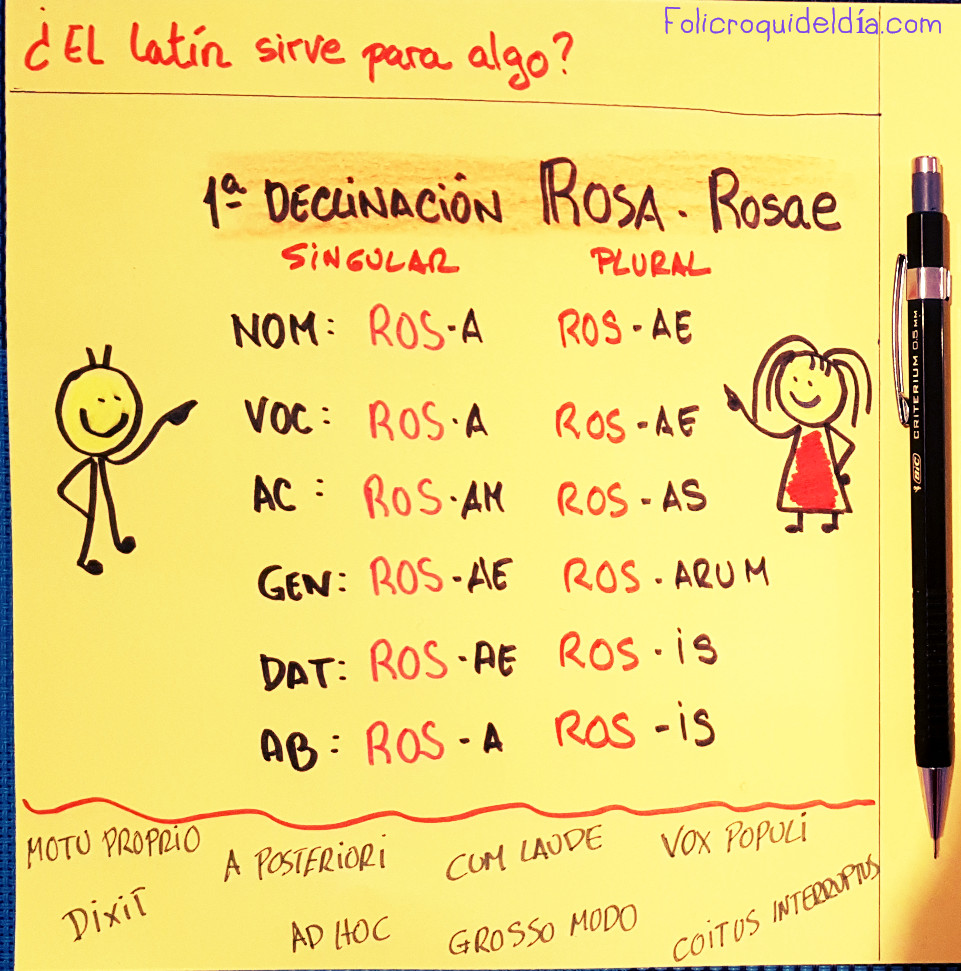 Folicroquideldía.com
¿EL latín sirve para algo?
1ª DECLINACIÓN ROSA. Rosae
SINGULAR PLURAL
NOM: ROS-A ROS-AE
VOC: ROS-A ROS-AE
AC: ROS-AM ROS-AS
GEN: ROS-AE ROS-ARUM
DAT: ROS-AE ROS-iS
AB: ROS-A ROS-iS
MOTU PROPRIO A POSTERIORI CUM LAUDE VOX POPULI
DIXIT AD HOC GROSSO MODO COITUS INTERRUPTUS
BIC CRITERIUM 0.5 MM